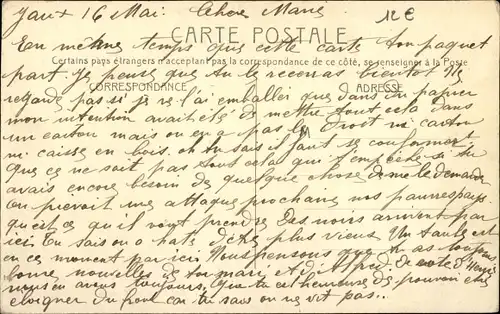 Jaux 16 Mai. Chère Marie
12€
CARTE POSTALE
En même temps que cette carte ton paquet
Certains pays étrangers n'acceptant pas la correspondance de ce côté, se renseigner à la Poste
part. Je pense que tu le recevras bientôt. Ne
CORRESPONDANCE
ADRESSE
regarde pas si je ne l'ai emballer que dans du papier
mon intention avait été de mettre tout cela dans
un carton mais on en a pas le droit ni carton
ni caisse en bois, et tu sais il faut se conformer,
que ce ne soit pas tout cela qui t'empêche si tu
avais encore besoin de quelque chose de me le demander
On prévoit une attaque prochaine nos pauvres pays
qu'est ce qu'il vont prendre. Des noirs arrivent par
ici. Tu sais on a hâte d'être plus vieux. Un
en ce moment par ici. Nous pensons que tu as toujours
bonne nouvelles de ton mari et d'Alfred, de
nous en avons toujours. Que tu es heureuse de pouvoir être
éloigner du front car tu sais on ne vit pas..